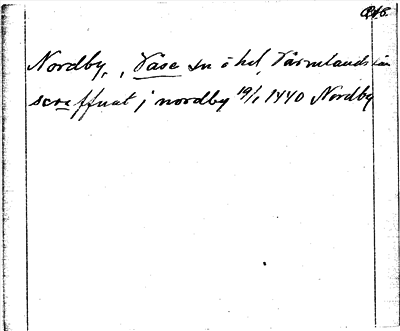 Nordby, , Väse sn o hd, Värmlands län
screffuat j nordby 19/1 1440 Nordby